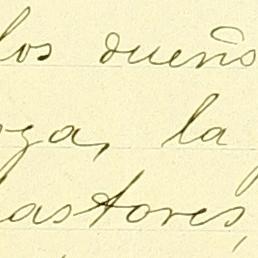 los dueños
ga, la
astores,